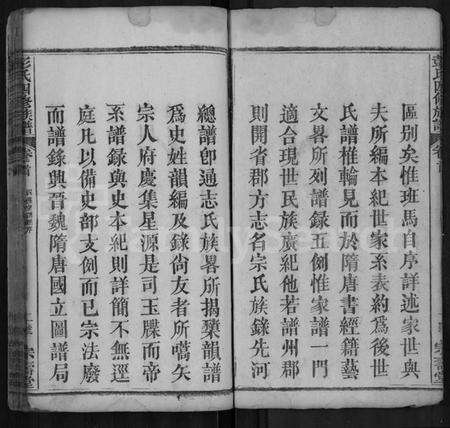 區別矣惟班馬自序詳述家世與
夫所編本紀世家系表約爲後世
氏譜椎輪見而於隋唐書經籍藝
文畧所列譜錄五例惟家譜一門
適合現世民族廣紀他若譜州郡
則開省郡方志名宗氏族錄先河
總譜卽通志氏族畧所揭櫫韻譜
爲史姓韻編及錄尙友者所嚆矢
宗人府慶集星源是司玉牒而帝
系譜錄與史本紀則詳簡不無逕
庭凡以備史部支例而已宗法廢
而譜錄興晉魏隋唐國立圖譜局
彭氏四修族譜
卷首